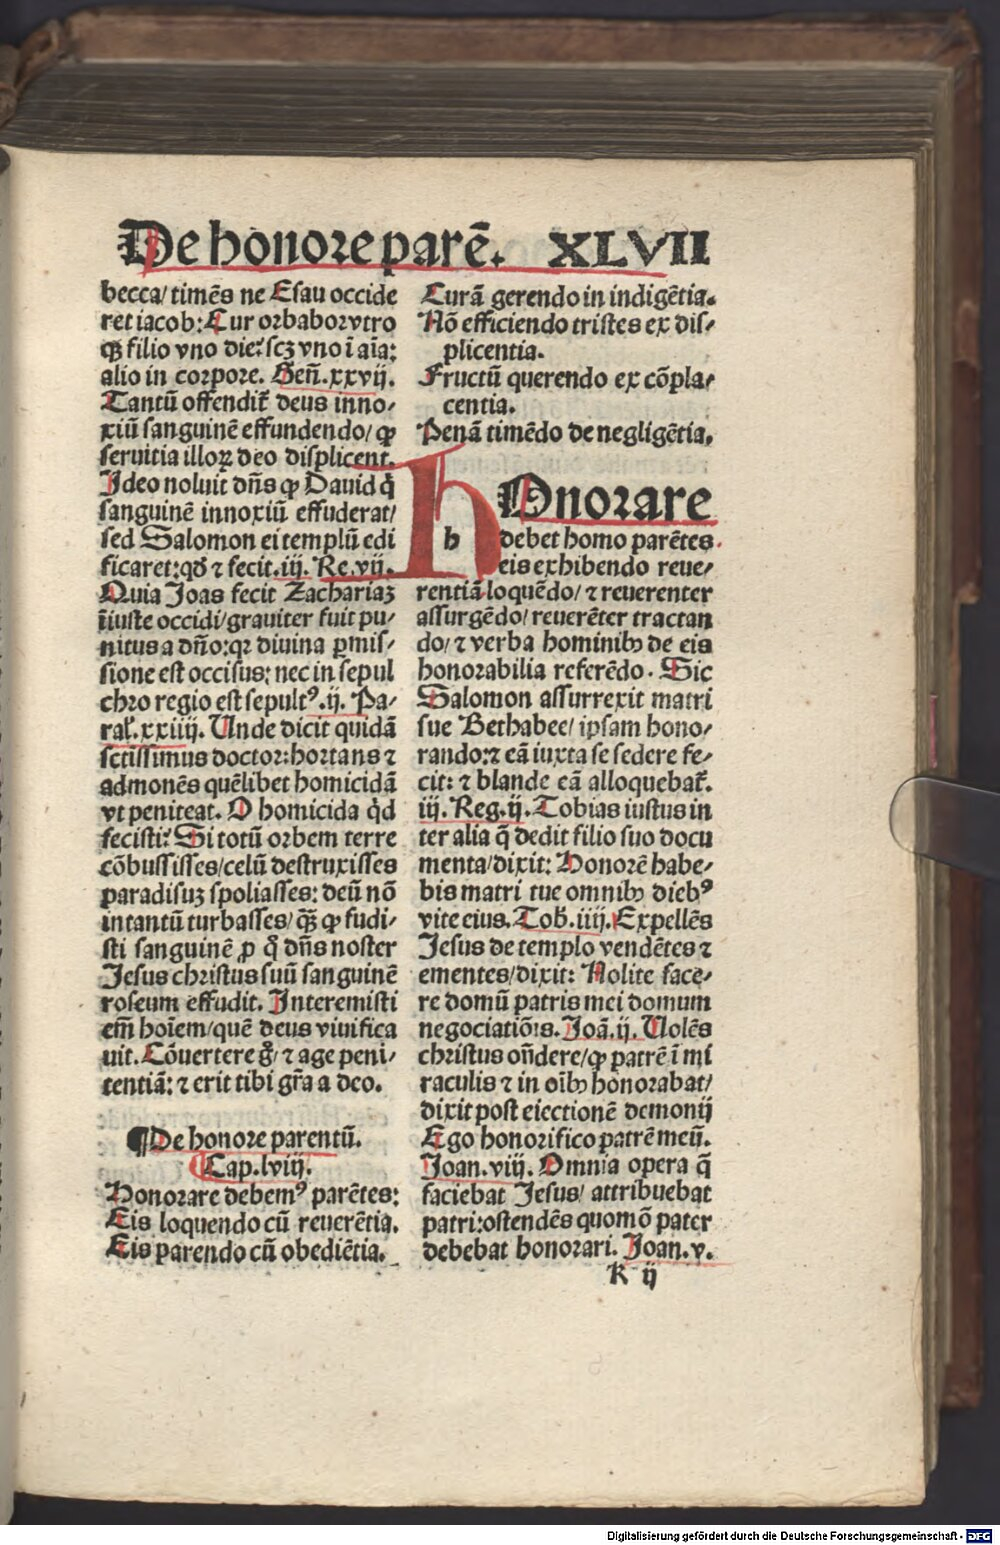 De honore parē. XLVII
becca/timēs ne Esau occide
ret iacob: Cur orbabor vtro
qꝫ filio vno die: scꝫ vno ī aīa:
alio in corpore. Geñ.xxvij.
Tantū offendit᷑ deus inno⸗
xiū sanguinē effundendo/ ꝙ
seruitia illoꝝ deo displicent.
Ideo noluit dn̄s ꝙ Dauid q̄
sanguinē innoxiū effuderat/
sed Salomon ei templū edi
ficaret: qd̄ ⁊ fecit.iij. Re.vij.
Quia Joas fecit Zachariaꝫ
īiuste occidi/grauiter fuit pu⸗
nitus a dn̄o: qꝛ diuina ꝑmis⸗
sione est occisus: nec in sepul
chro regio est sepultꝰ.ij. Pa⸗
ral̓.xxiiij. Unde dicit quidā
sctissimus doctor: hortans ⁊
admonēs quēlibet homicidā
vt peniteat. O homicida qd̄
fecisti: Si totū orbem terre
cōbussisses/celū destruxisses
paradisuꝫ spoliasses: deū nō
in tantū turbasses/ qꝫ̄ ꝙ fudi⸗
sti sanguinē ꝓ q̊ dn̄s noster
Jesus christus suū sanguinē
roseum effudit. Interemisti
em̄ hoīem/quē deus viuifica
uit. Cōuertere g̊/ ⁊ age peni⸗
tentiā: ⁊ erit tibi gr̄a a deo.
¶De honore parentū.
Cap.lviij.
Honorare debemꝰ parētes:
Eis loquendo cū reuerētia.
Eis parendo cū obediētia.
Curā gerendo in indigētia.
Nō efficiendo tristes ex dis⸗
plicentia.
Fructū querendo ex cōpla⸗
centia.
Penā timēdo de negligētia.
h
HOnorare
debet homo parētes
eis exhibendo reue⸗
rentiā loquēdo/ ⁊ reuerenter
assurgēdo/ reuerēter tractan
do/ ⁊ verba hominibꝫ de eis
honorabilia referēdo. Sic
Salomon assurrexit matri
sue Bethabee/ ipsam hono⸗
rando: ⁊ eā iuxta se sedere fe⸗
cit: ⁊ blande eā alloquebat᷑.
iij. Reg.ij. Tobias iustus in
ter alia q̄ dedit filio suo docu
menta/dixit: Honorē habe⸗
bis matri tue omnibꝫ diebꝰ
vite eius. Tob̓.iiij. Expellēs
Jesus de templo vendētes ⁊
ementes/dixit: Nolite face⸗
re domū patris mei domum
negociatiōis. Joā.ij. Uolēs
christus on̄dere/ꝙ patrē ī mi
raculis ⁊ in oībꝫ honorabat/
dixit post eiectionē demonij
Ego honorifico patrē meū.
Joan.viij. Omnia opera q̄
faciebat Jesus/ attribuebat
patri: ostendēs quomō pater
debebat honorari. Joan.v.
k ij
Digitalisierung gefördert durch die Deutsche Forschungsgemeinschaft - DFG